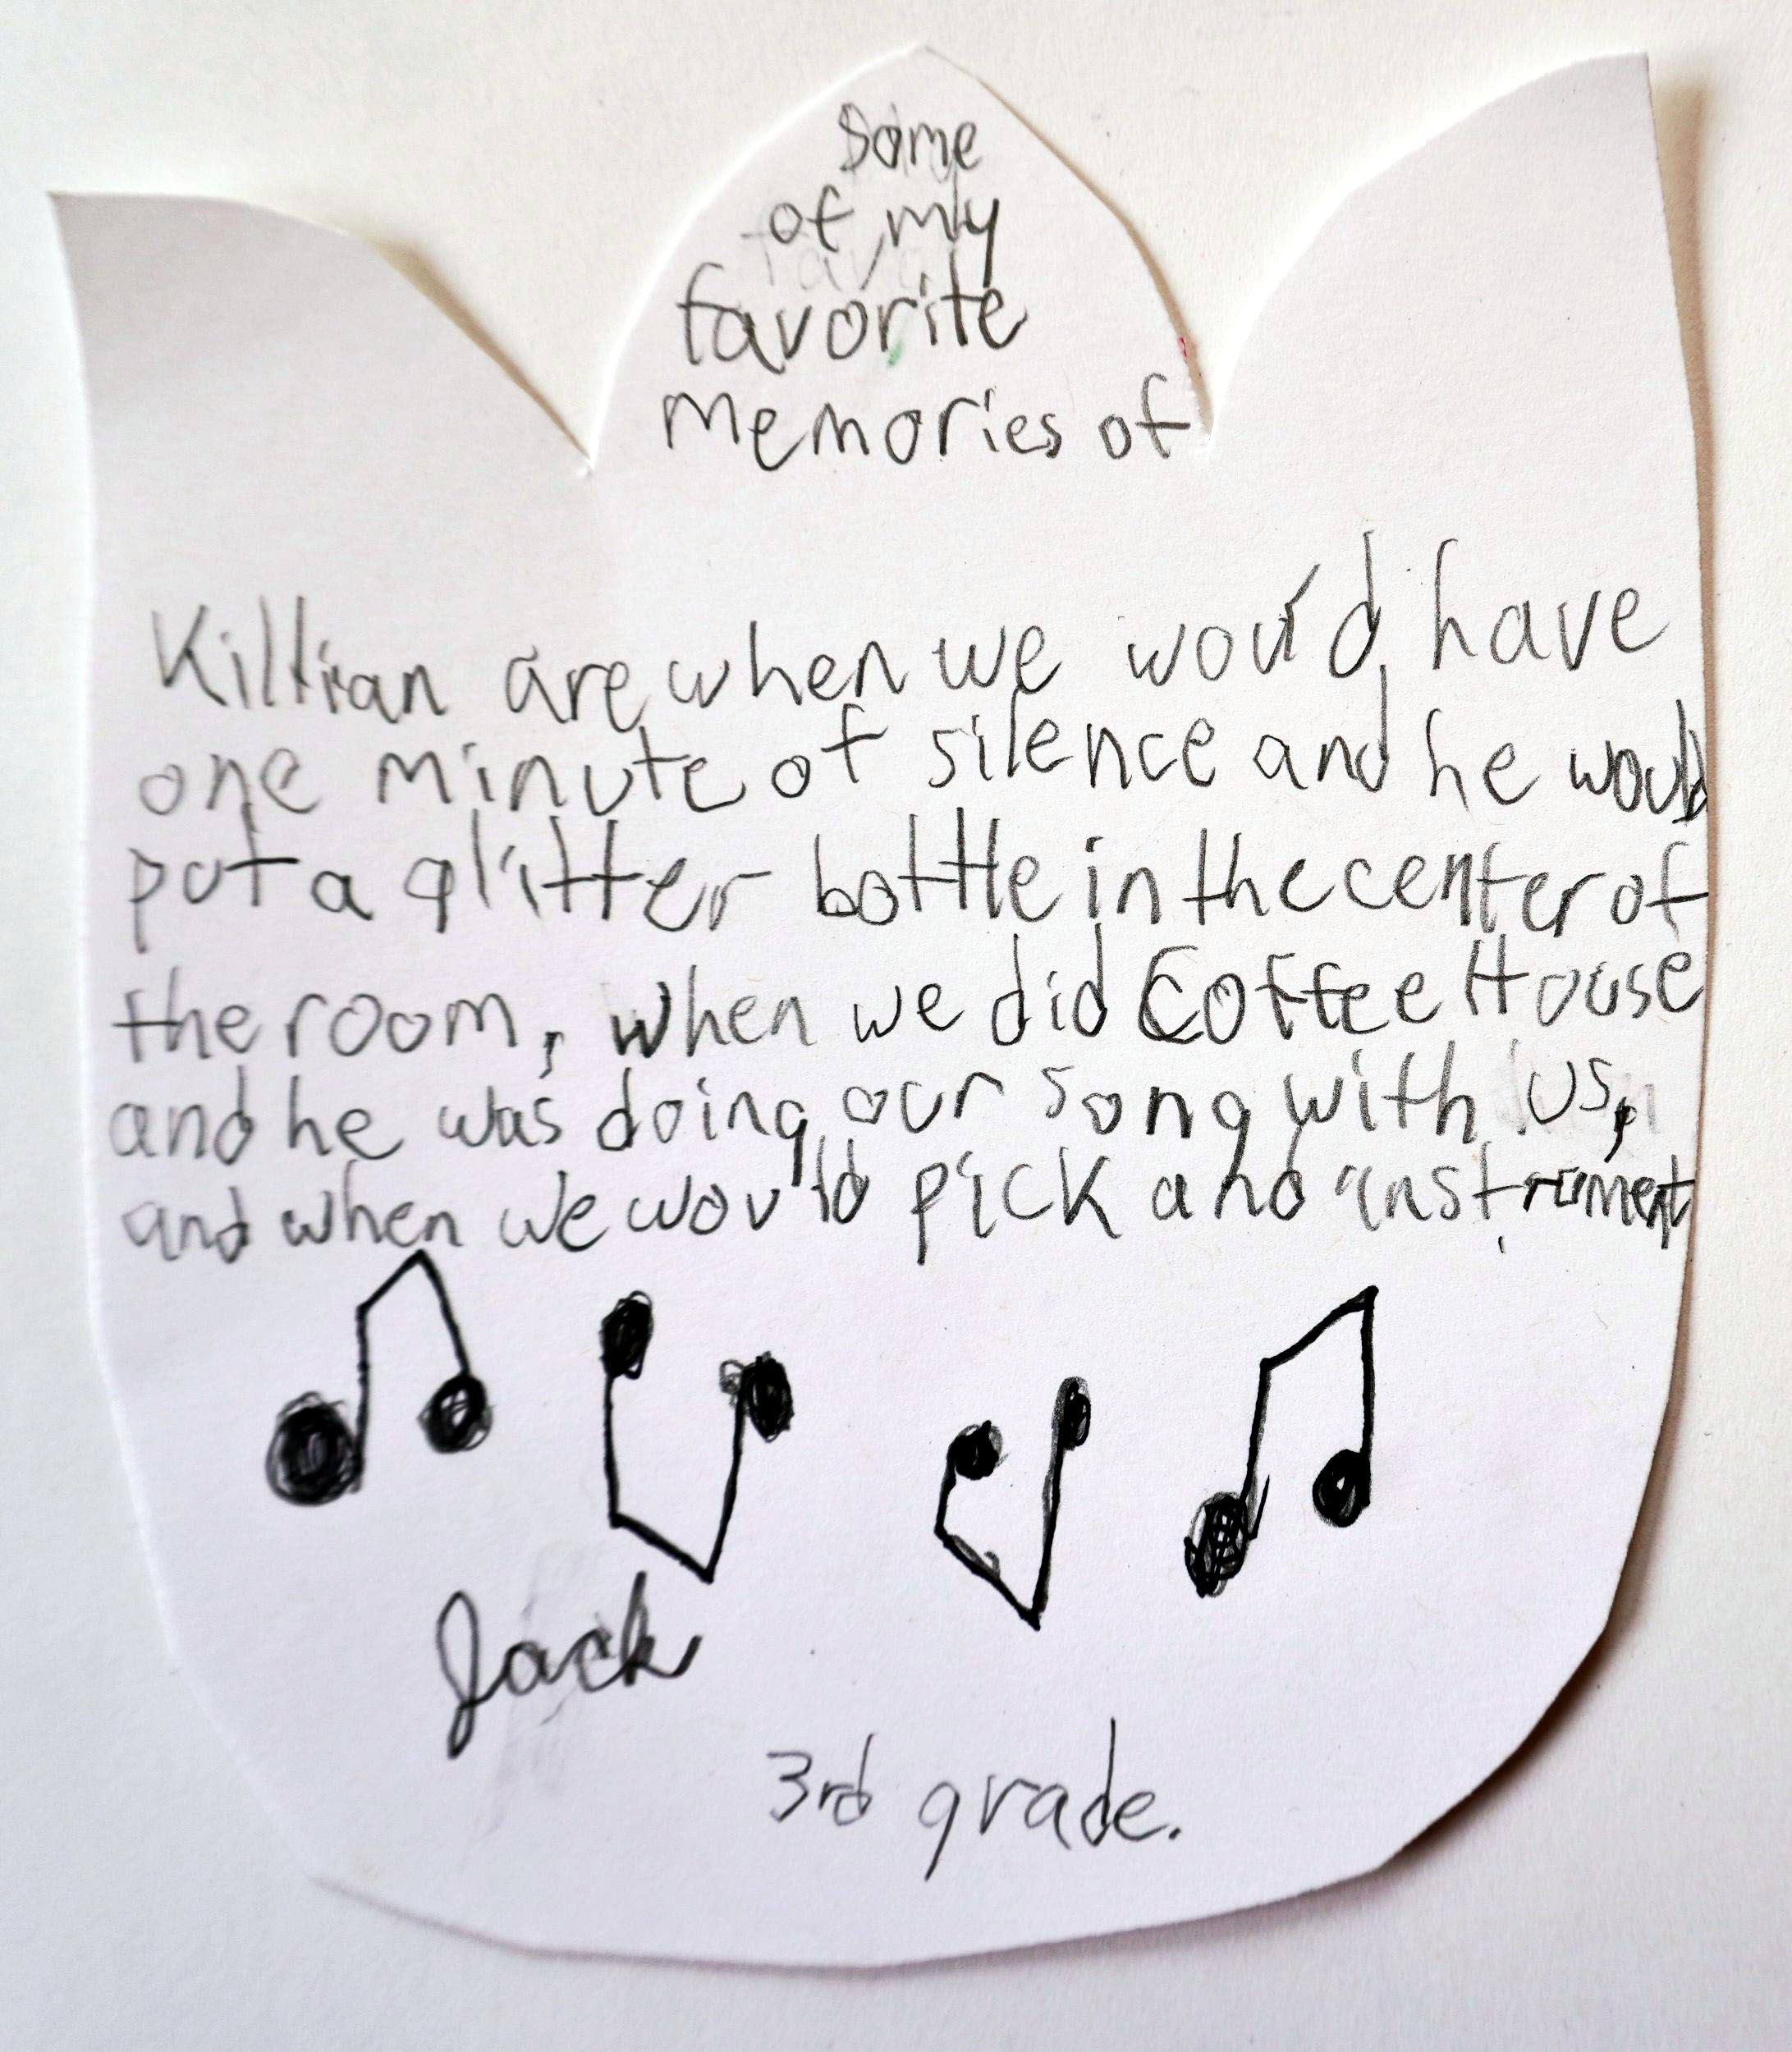 Some
of my
favorite
Memories of
Killian are when we would have
one minute of silence and he would
put a glitter bottle in the center of
the room, when we did Coffee House
and he was doing our song with us,
and when we would pick and instrument
Jack
3rd grade.